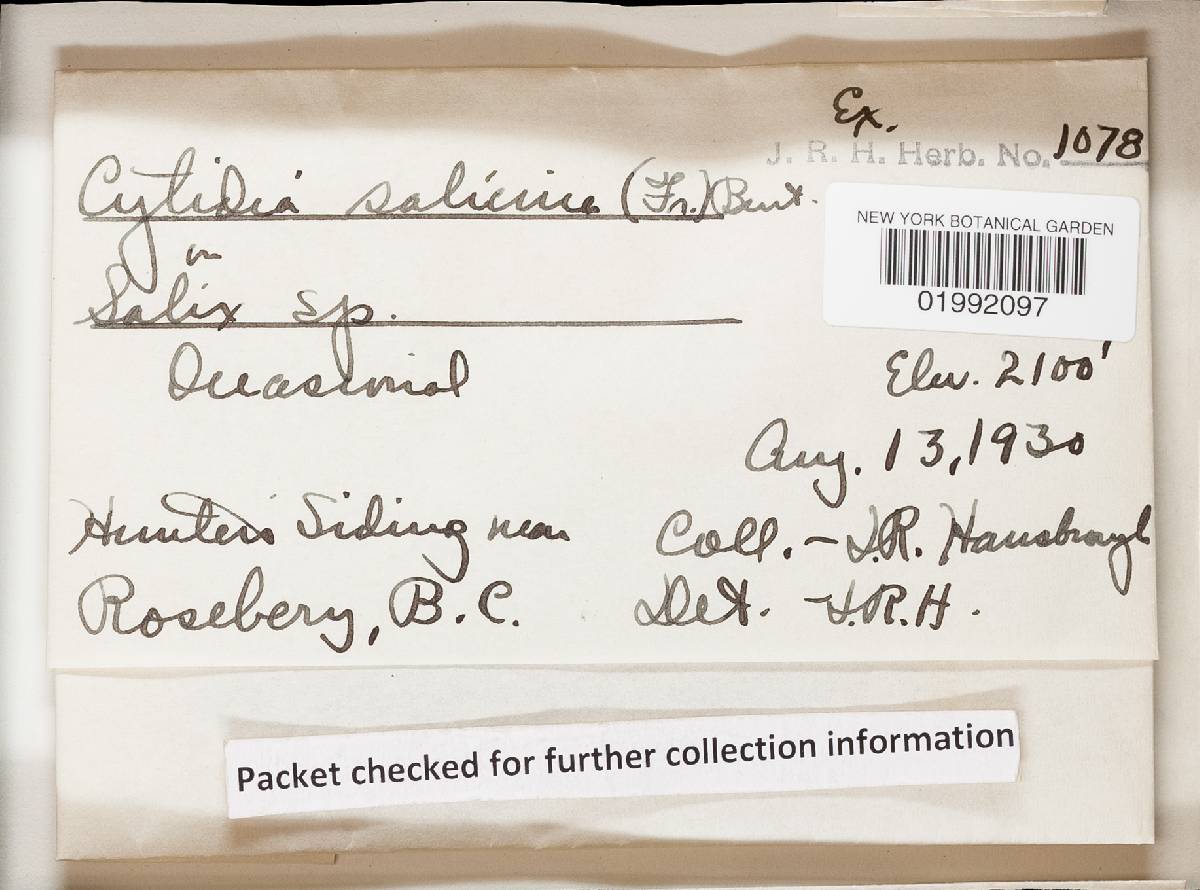 Ex.
J. R. H. Herb. No. 1078
Cytidia salicina (Fr.) Burt.
on
Salix sp.
NEW YORK BOTANICAL GARDEN
01992097
Occasional
Elev. 2100'
Aug. 13, 1930
Hunters Siding near
Rosebery, B.C.
Coll. - J.R. Hansbrough
Det. - J.R.H.
Packet checked for further collection information